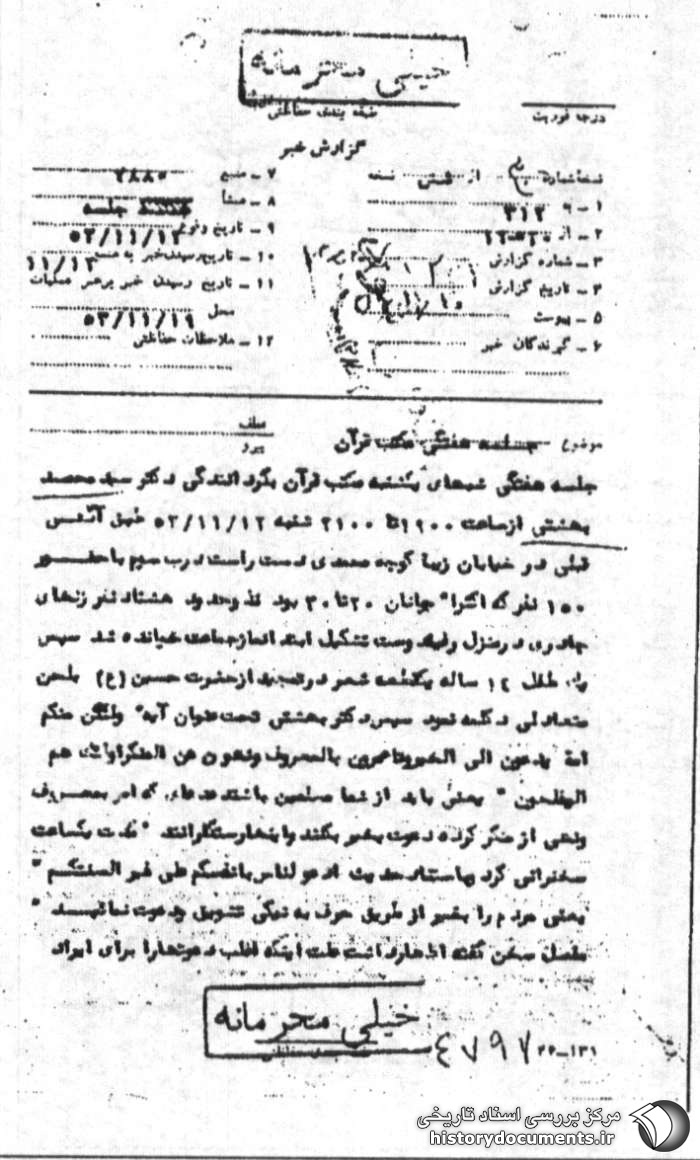 خیلی محرمانه
طبقه بندی حفاظتی
درجه فوریت
گزارش خبر
نسخه شماره از شش نسخه
۱ ـ به ۳۱۲
۲ ـ از
۳ ـ شماره گزارش
۴ ـ تاریخ گزارش
۵ ـ پیوست
۶ ـ گیرندگان خبر
۷ ـ منبع ۲۸۸۰
۸ ـ منشا جلسه
۹ ـ تاریخ وقوع ۵۲/۱۱/۱۲
۱۰ ـ تاریخ رسیدن خبر به منبع
۱۱ ـ تاریخ رسیدن خبر برهبر عملیات ۱۱/۱۳
محل ۵۲/۱۱/۱۹
۱۲ ـ ملاحظات حفاظتی
موضوع جلسه هفتگی مکتب قرآن
عطف
پیرو
جلسه هفتگی شبهای یکشنبه مکتب قرآن بگردانندگی دکتر سید محمد
بهشتی از ساعت ۱۹۰۰ تا ۲۱۰۰ شنبه ۵۲/۱۱/۱۲ طبق آدرس
قبلی در خیابان زیبا کوچه صمدی دست راست درب سوم با حضور
۱۵۰ نفر که اکثرا" جوانان ۲۰ تا ۳۰ بود ند وحدود هشتاد نفر زنهای
چادری در منزل تشکیل ابتدا نماز جماعت خوانده شد سپس
طفل ۱۲ ساله یکقطعه شعر در تمجید از حضرت حسین (ع) بلحن
متعادلی دکلمه نمود سپس دکتر بهشتی تحت عنوان آیه" ولتکن منکم
امة یدعون الی الخیر ویامرون بالمعروف وینهون عن المنکر اولئك هم
المفلحون " یعنی باید از شما مسلمین باشند که امر بمعروف
ونهی از منکر کرده دعوت بخیر بکنند واینها رستگارانند " مدت یکساعت
سخنرانی کرد وباستناد حدیث ادعو لناس بانفسکم طی غیر السنتکم "
یعنی مردم را بغیر از طریق حرف به نیکی تشویق ودعوت نمائید "
مفصل سخن گفته اظهار داشت علت اینکه اغلب دعوتها را برای ایراد
خیلی محرمانه
٤٧٩٧
۲۲-۱۳۱
مرکز بررسی اسناد تاریخی
historydocuments.ir